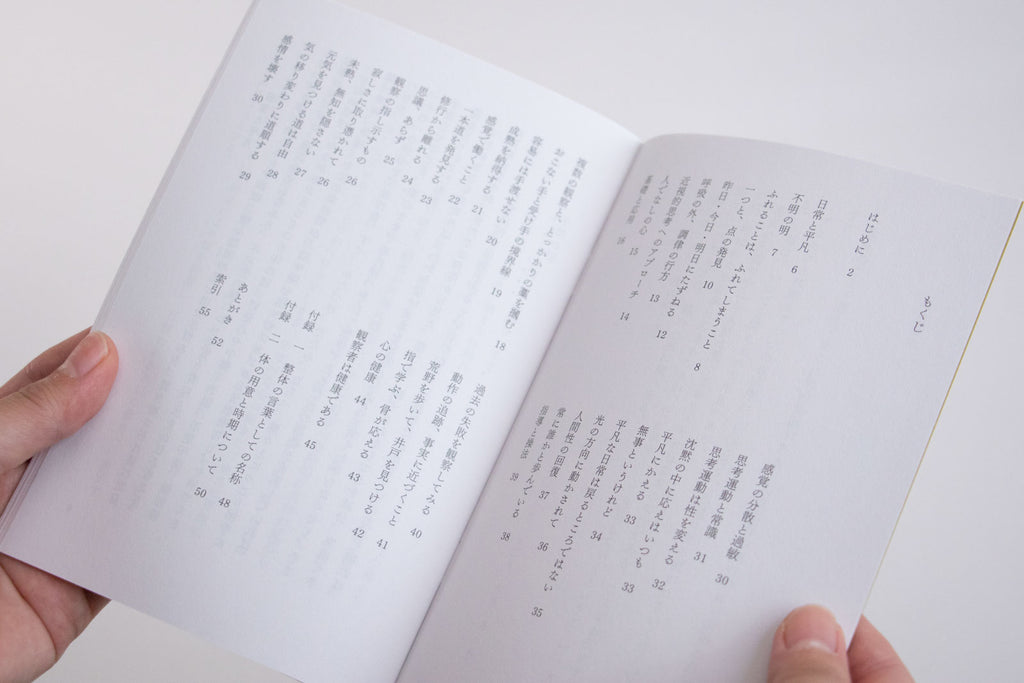 もくじ
はじめに 2
日常と平凡 6
不明の明 7
ふれることは、ふれてしまうこと 8
一つと、点の発見 10
昨日・今日・明日にたずねる 12
呼吸の外、調律の行方 13
近視的思考へのアプローチ 14
人でなしの心 15
基礎と応用 16
複数の観察と、とっかかりの藁を掴む 18
おこない手と受け手の境界線 19
容易には手渡せない 20
成熟を納得する 21
感覚で働くこと 22
一本道を発見する 23
修行から離れる 24
思議、あらず 25
観察の指し示すもの 26
寂しさに取り憑かれて 26
未熟、無知を隠さない 27
元気を見つける道は自由 28
気の移り変わりに追順する 29
感情を壊す 30
感覚の分散と過敏 30
思考運動と常識 31
思考運動は性を変える 32
沈黙の中に応えはいつも 33
平凡にかえる 33
無事というけれど 34
平凡な日常は戻るところではない 35
光の方向に動かされて 36
人間性の回復 37
常に誰かと歩んでいる 38
指導と操法 39
過去の失敗を観察してみる 40
動作の追跡、事実に近づくこと 41
荒野を歩いて、井戸を見つける 42
指で学ぶ、骨が応える 43
心の健康 44
観察者は健康である 45
付録 一 整体の言葉としての名称 48
付録 二 体の用意と時期について 50
あとがき 52
索引 55